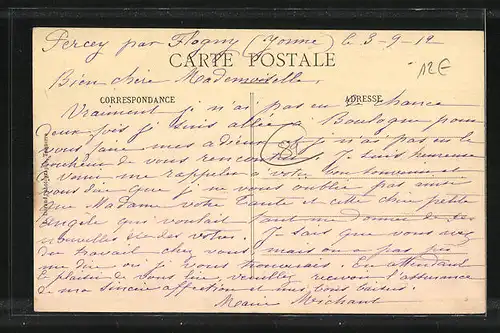 Percey par Flogny (Yonne) le 3-9-12
CARTE POSTALE
12€
Bien chère Mademoiselle,
CORRESPONDANCE
ADRESSE
Vraiment je n'ai pas eu de chance
Deux fois je suis allée à Boulogne pour
vous faire mes adieux je n'ai pas eu le
bonheur de vous rencontrer. Je suis heureuse
venir me rappeler à votre bon souvenir et
vous dire que je ne vous oublie pas ainsi
que Madame votre Tante et cette chère petite
Angèle qui voulait tant me donner de tes
nouvelles de des votres. Je sais que vous avez
du travail chez vous mais on a pas pu
me dire où je vous trouverais. En attendant
le plaisir de vous lire veuillez recevoir l'assurance
de ma sincère affection et mes bons baisers.
Marie Michaut